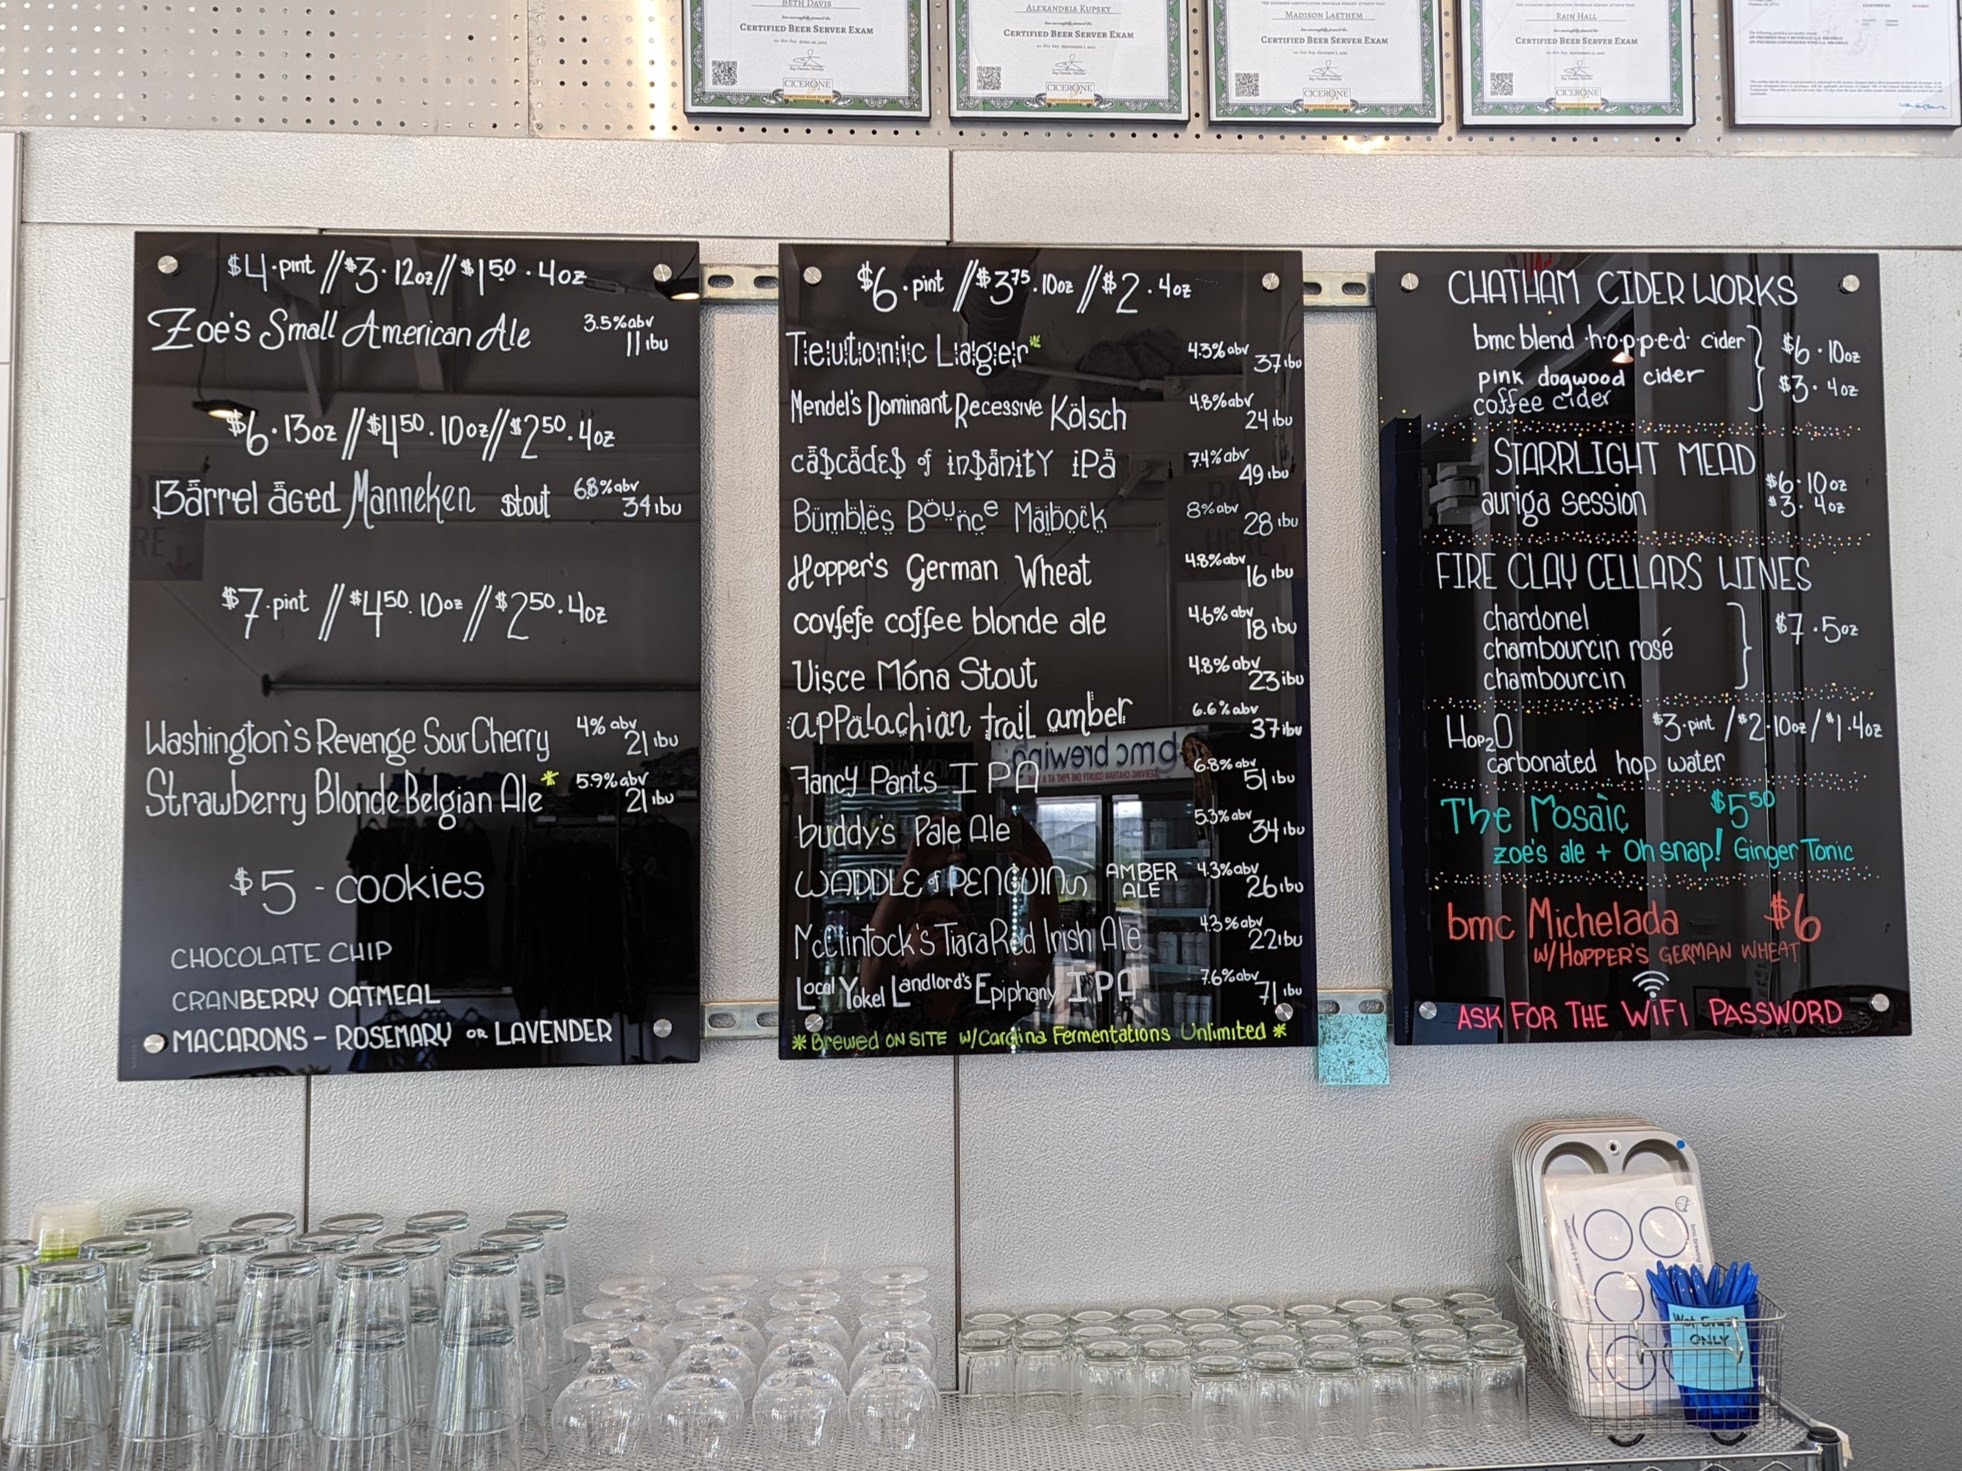 BETH DAVIS
CERTIFIED BEER SERVER EXAM
CICERONE
ALEXANDRIA KUPSKY
CERTIFIED BEER SERVER EXAM
CICERONE
MADISON LAETHEM
CERTIFIED BEER SERVER EXAM
CICERONE
RAIN HALL
CERTIFIED BEER SERVER EXAM
CICERONE
$4·pint // $3·12oz // $1.50·4oz
Zoe's Small American Ale 3.5%abv 11ibu
$6·13oz // $4.50·10oz // $2.50·4oz
Barrel aged Manneken stout 6.8%abv 34ibu
$7·pint // $4.50·10oz // $2.50·4oz
Washington's Revenge Sour Cherry 4%abv 21ibu
Strawberry Blonde Belgian Ale* 5.9%abv 21ibu
$5 - cookies
CHOCOLATE CHIP
CRANBERRY OATMEAL
MACARONS - ROSEMARY OR LAVENDER
$6·pint // $3.75·10oz // $2·4oz
Teutonic Lager* 4.3%abv 37ibu
Mendel's Dominant Recessive Kölsch 4.8%abv 24ibu
cascades of insanity iPa 7.4%abv 49ibu
Bumbles Bounce Maibock 8%abv 28ibu
Hopper's German Wheat 4.8%abv 16ibu
covfefe coffee blonde ale 4.6%abv 18ibu
Uisce Móna Stout 4.8%abv 23ibu
appalachian trail amber 6.6%abv 37ibu
Fancy Pants IPA 6.8%abv 51ibu
buddy's Pale Ale 5.3%abv 34ibu
WADDLE of PENGUINS AMBER ALE 4.3%abv 26ibu
McClintock's Tiara Red Irish Ale 4.3%abv 22ibu
Local Yokel Landlord's Epiphany IPA 7.6%abv 71ibu
*Brewed ON SITE w/Carolina Fermentations Unlimited*
CHATHAM CIDER WORKS
bmc blend h·o·p·p·e·d cider
pink dogwood cider
coffee cider
$6·10oz
$3·4oz
STARRLIGHT MEAD
auriga session
$6·10oz
$3·4oz
FIRE CLAY CELLARS WINES
chardonel
chambourcin rosé
chambourcin
$7·5oz
Hop₂O $3·pint / $2·10oz / $1·4oz
carbonated hop water
The Mosaic $5.50
zoe's ale + Oh snap! Ginger Tonic
bmc Michelada $6
w/HOPPER'S GERMAN WHEAT
ASK FOR THE WiFI PASSWORD
ONLY